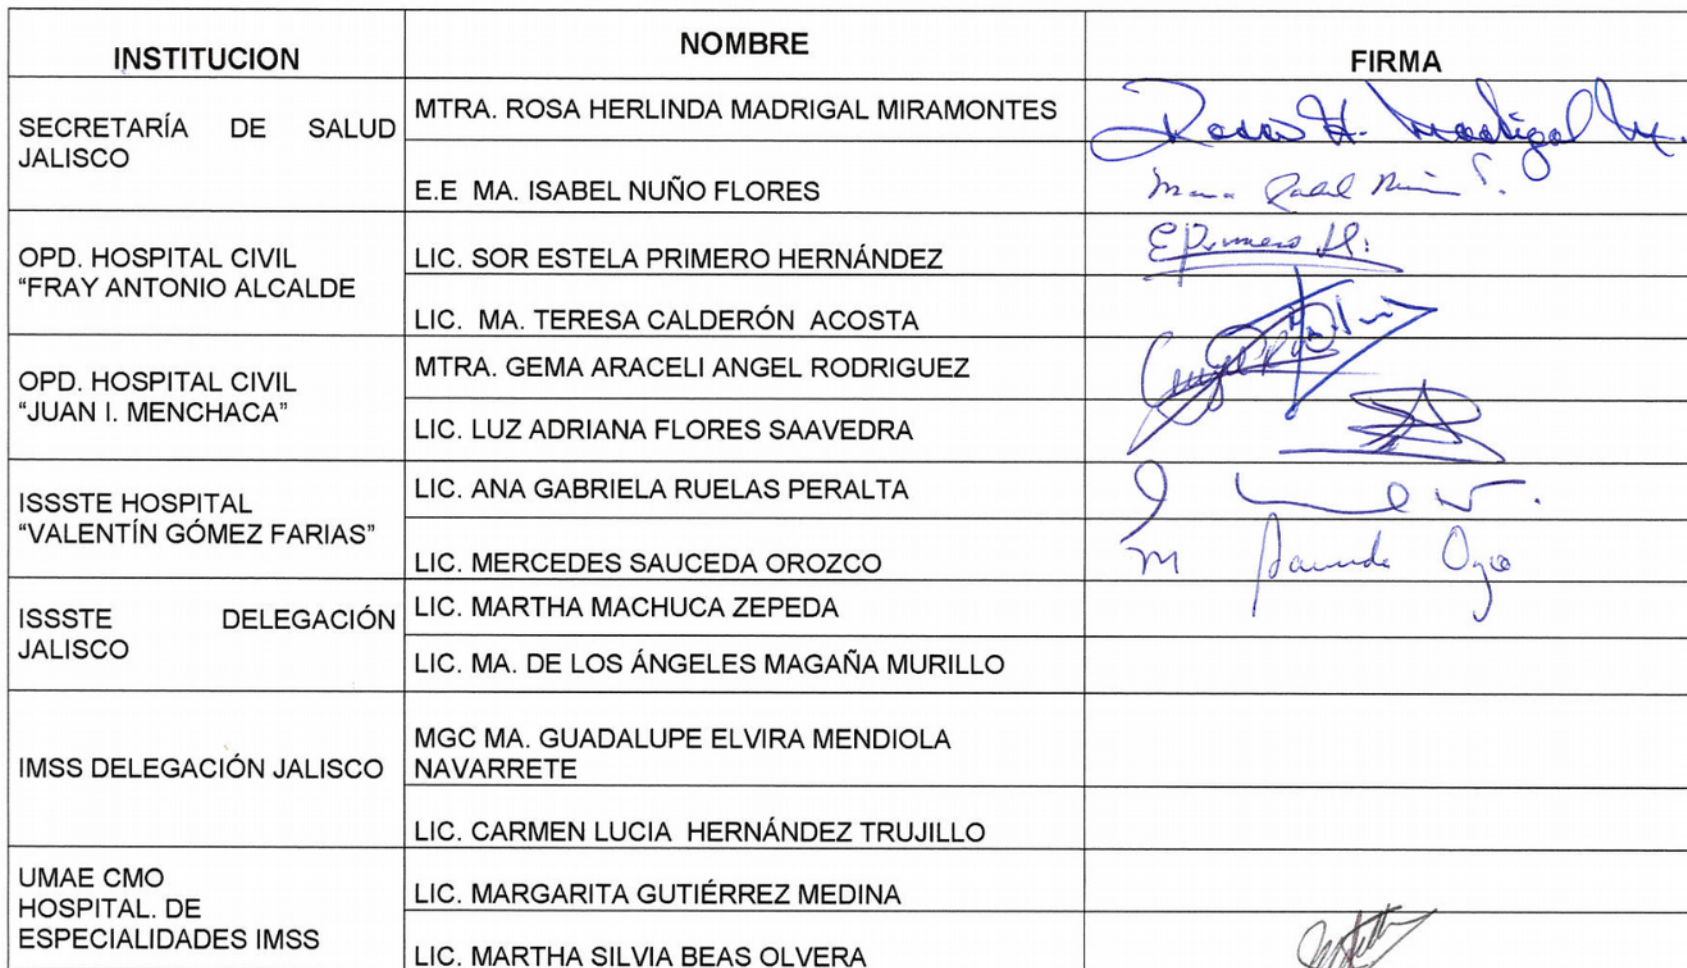 INSTITUCION
NOMBRE
FIRMA
SECRETARÍA DE SALUD
JALISCO
MTRA. ROSA HERLINDA MADRIGAL MIRAMONTES
Rosa H. Madrigal M.
E.E MA. ISABEL NUÑO FLORES
OPD. HOSPITAL CIVIL
“FRAY ANTONIO ALCALDE
LIC. SOR ESTELA PRIMERO HERNÁNDEZ
EPrimero H.
LIC. MA. TERESA CALDERÓN ACOSTA
OPD. HOSPITAL CIVIL
“JUAN I. MENCHACA”
MTRA. GEMA ARACELI ANGEL RODRIGUEZ
LIC. LUZ ADRIANA FLORES SAAVEDRA
ISSSTE HOSPITAL
“VALENTÍN GÓMEZ FARIAS”
LIC. ANA GABRIELA RUELAS PERALTA
LIC. MERCEDES SAUCEDA OROZCO
ISSSTE DELEGACIÓN
JALISCO
LIC. MARTHA MACHUCA ZEPEDA
LIC. MA. DE LOS ÁNGELES MAGAÑA MURILLO
IMSS DELEGACIÓN JALISCO
MGC MA. GUADALUPE ELVIRA MENDIOLA
NAVARRETE
LIC. CARMEN LUCIA HERNÁNDEZ TRUJILLO
UMAE CMO
HOSPITAL. DE
ESPECIALIDADES IMSS
LIC. MARGARITA GUTIÉRREZ MEDINA
LIC. MARTHA SILVIA BEAS OLVERA